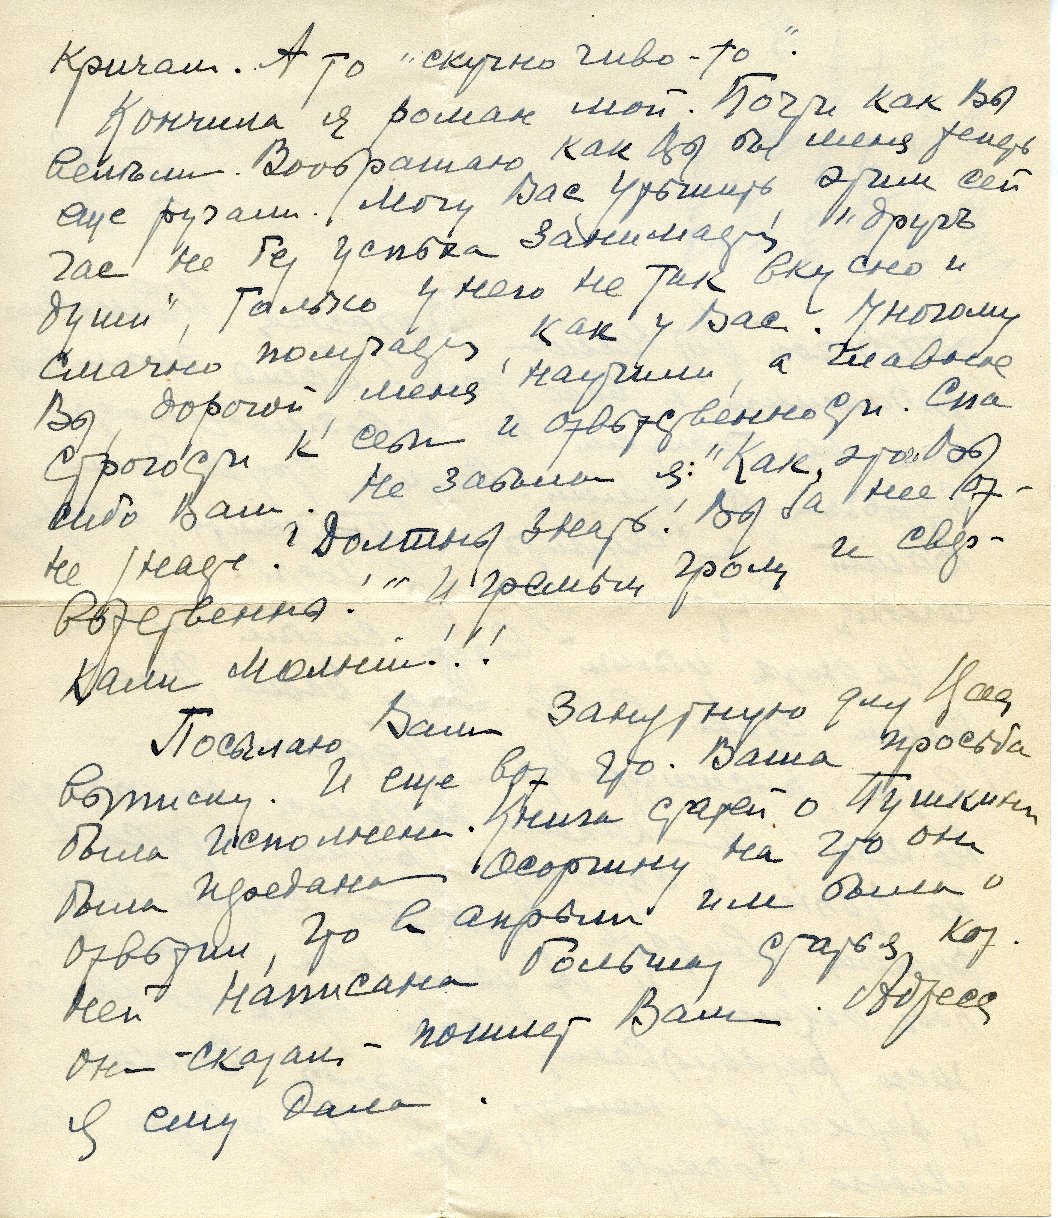 кричат. А то "скучно чиво-то".
Кончила я роман мой. Почти как Вы
велѣли. Воображаю как Вы бы меня теперь
еще ругали. Могу Вас утѣшить этим сей
час не без успѣха занимается "другъ
души", только у него не так вкусно и
смачно получается, как у Вас. Многому
Вы, дорогой меня научили, а главное
строгости к себѣ и отвѣтственности. Спа
сибо Вам. Не забыла я: "Как, это Вы
не знаете? Должны знать! Вы за нее от-
вѣтственны!" И гремѣл гром и свер-
кали молніи!!!
Посылаю Вам занятную для Вас
выписку. И еще вот что. Ваша просьба
была исполнена. Книга статей о Пушкинѣ
была передана Осоргину на что он
отвѣтил, что в апрѣлѣ им была о
ней написана большая статья кот.
он -сказал- пошлет Вам. Адреса
я ему дала.